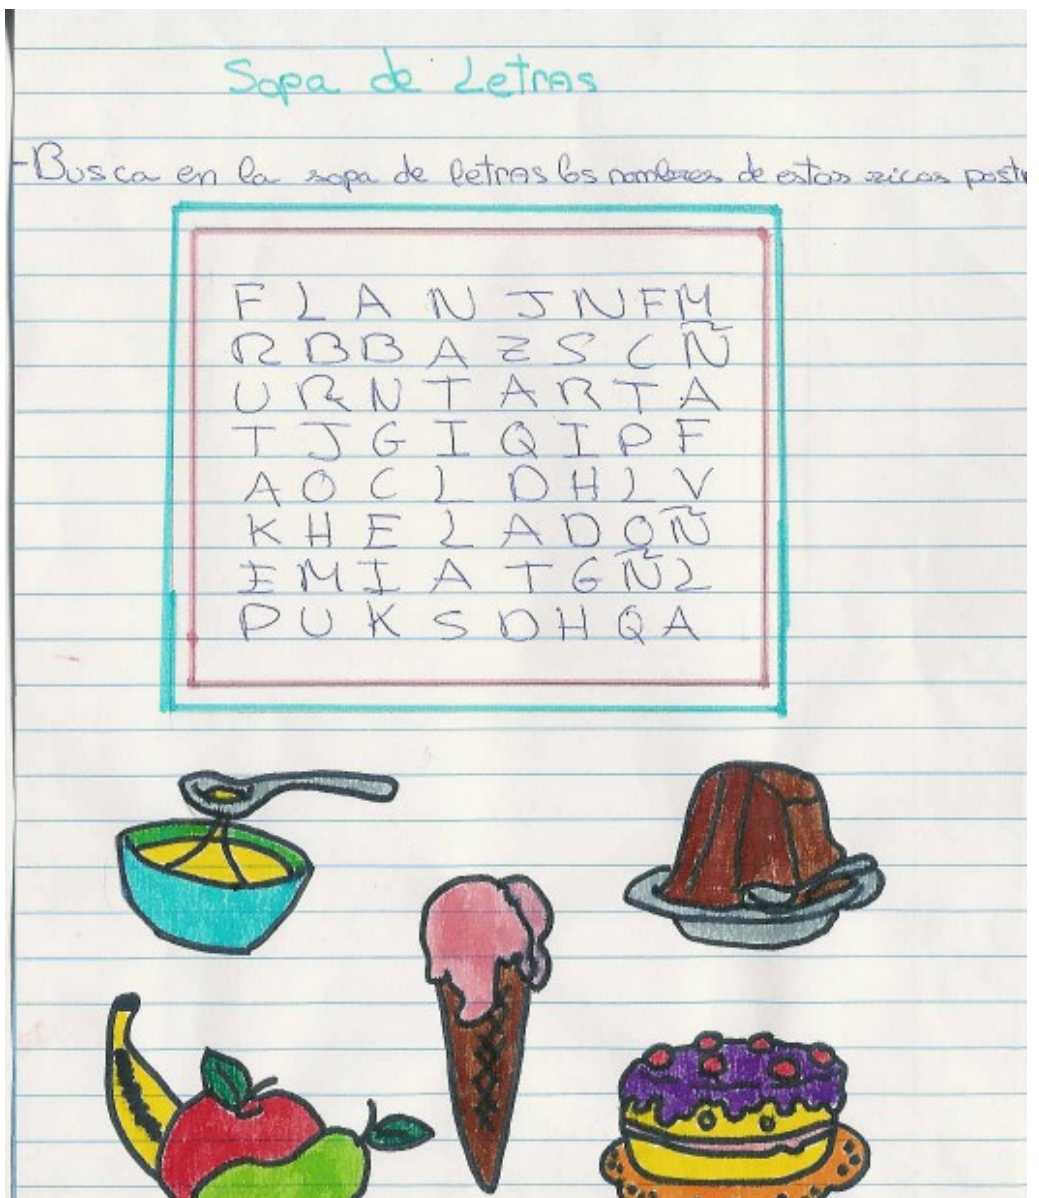 Sopa de Letras
-Busca en la sopa de letras los nombres de estos ricos
F L A N J N F M
R B B A Z S C Ñ
U R N T A R T A
T J G I Q I P F
A O C L D H L V
K H E L A D O Ñ
I M I A T G Ñ L
P U K S D H Q A